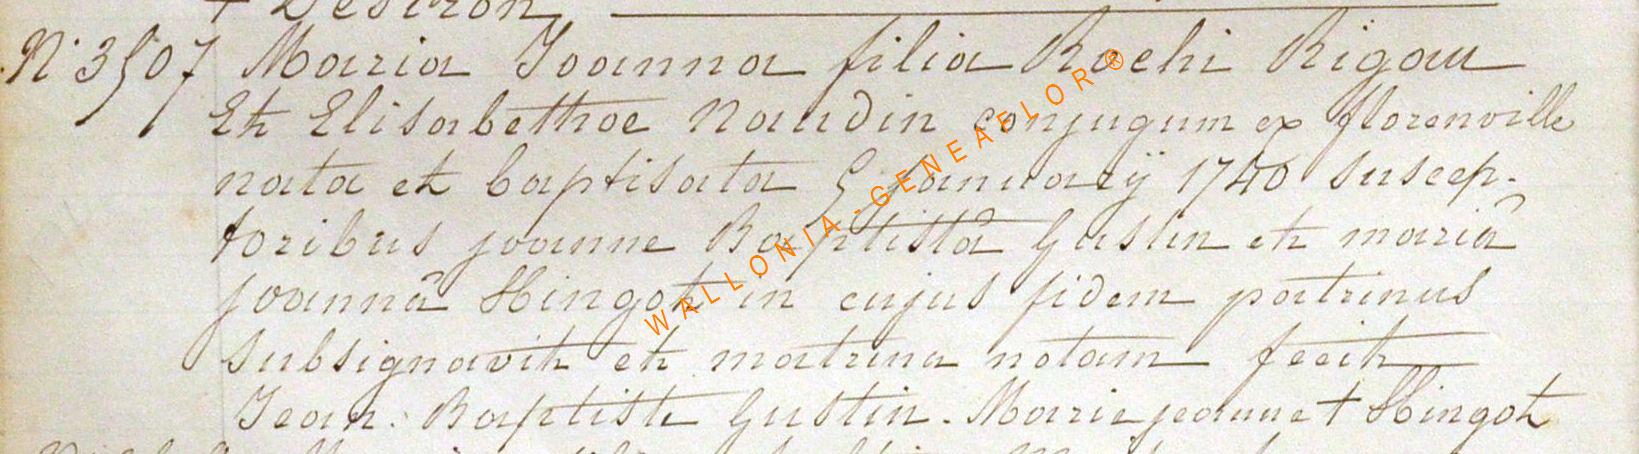 + Desiron
N° 3507 Maria Joanna filia Rochi Rigau
Et Elisabethae Naudin conjugum ex florenville
nata et baptisata 5 januarÿ 1740 suscep-
toribus joanne Baptistâ Gustin et mariâ
joannâ Hingot in cujus fidem patrinus
subsignavit et matrina notam fecit
Jean Baptiste Gustin . Marie jeanne + Hingot
WALLONIA-GENEAFLOR®